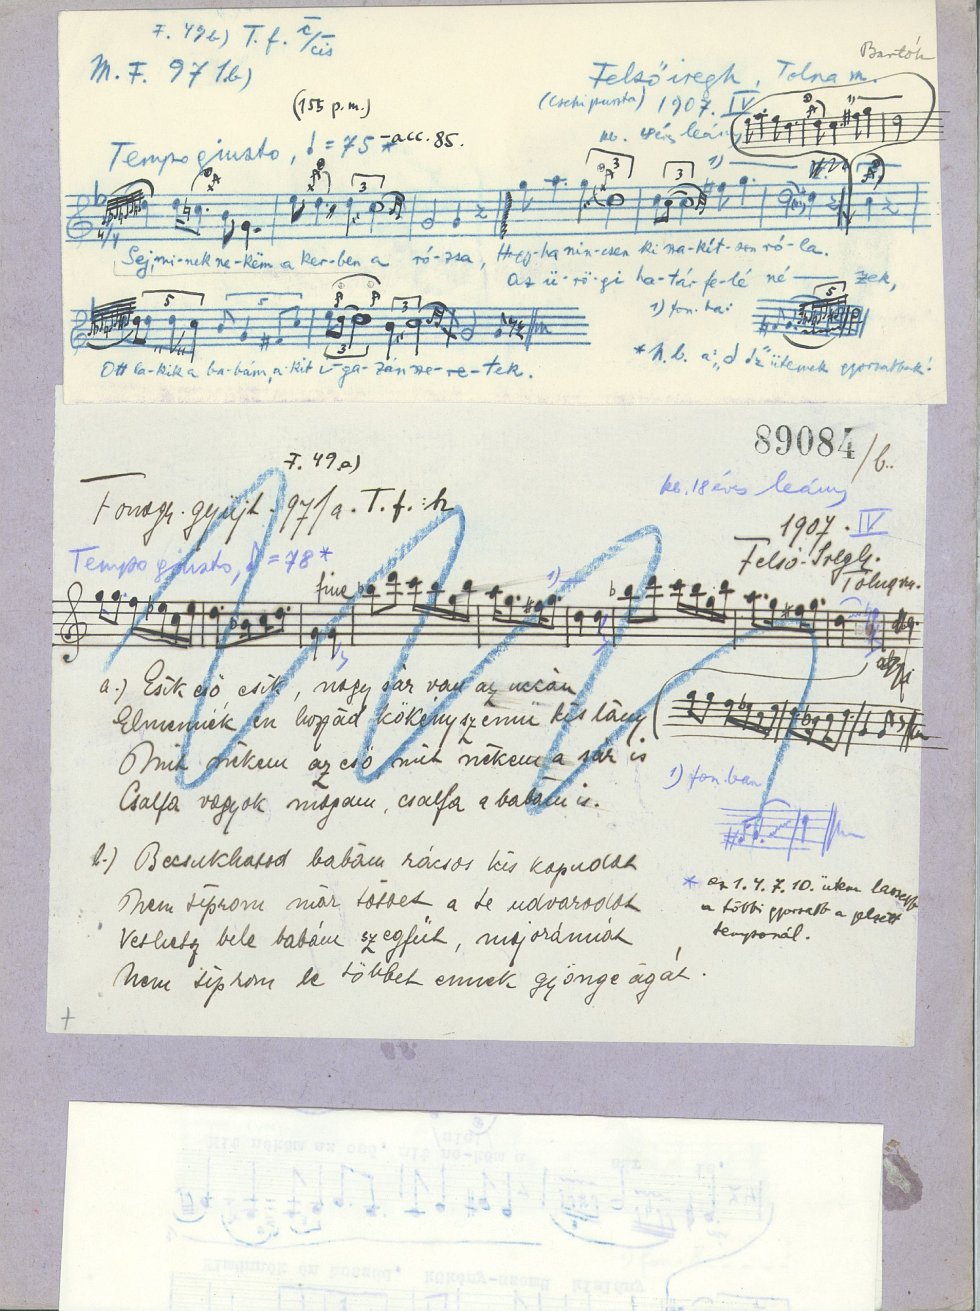 F. 49b) T. f. c/cis
Bartók
M. F. 971b)
Felsőiregh, Tolna m.
(155 p.m.)
(Csehi puszta) 1907. IV
kb. 18 éves leány
Tempo giusto, ♩ = 75 * acc. 85.
1)
3
3
3
4/4
Sej, mi-nek ne-këm a ker-ben a ró-zsa, Hogy-ha nin-csen ki sza-kít-son ró-la.
Az ü-rö-gi ha-tár fe-lé né zek,
5
5
3
3
1) fon. ba:
Ott la-kik a ba-bám, a-kit i-ga-zán sze-re-tek.
* N. b. a
ütemek gyorsabbak!
89084/b.
F. 49a)
Fonogr. gyűjt. 971/a. T. f. : h
kb. 18 éves leány
1907. IV
Felső-Iregh.
Tolna m.
Tempo giusto, ♩ = 78 *
fine
1)
a.) Esik eső esik, nagy sár van az uccán
Elmennék én hozzád kökényszemü kis lány
Mit nékem az eső mit nékem a sár is
Csalfa vagyok magam, csalfa a babám is.
1) fonban
b.) Becsukhatod babám rácsos kis kapudat
Nem tiprom már többet a te udvarodat
Vethetsz bele babám szegfüt, majoránnát,
Nem tiprom le többet ennek gyönge ágát.
* az 1. 4. 7. 10. ütem lassabb
a többi gyorsabb a jelzett
tempónál.